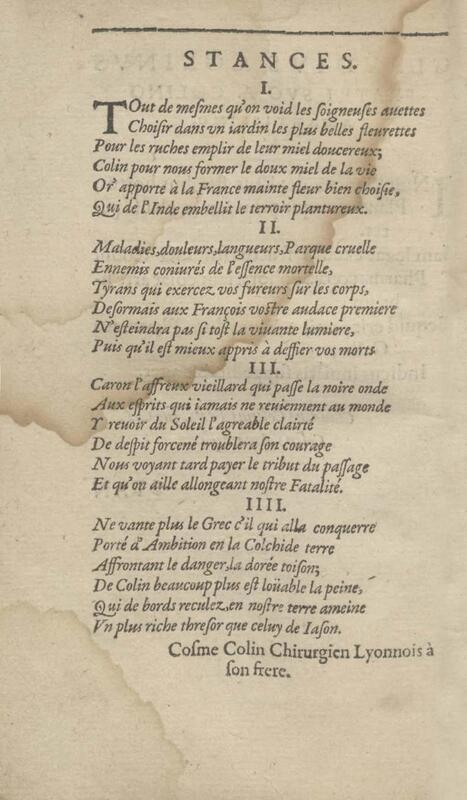 STANCES.
I.
TOut de meſmes qu'on void les ſoigneuſes auettes
Choiſir dans vn iardin les plus belles fleurettes
Pour les ruches emplir de leur miel doucereux;
Colin pour nous former le doux miel de la vie
Or' apporte à la France mainte fleur bien choiſie,
Qui de l'Inde embellit le terroir plantureux.
II.
Maladies, douleurs, langueurs, Parque cruelle
Ennemis coniurés de l'eſſence mortelle,
Tyrans qui exercez vos fureurs ſur les corps,
Deſormais aux François voſtre audace premiere
N'eſteindra pas ſi toſt la viuante lumiere,
Puis qu'il eſt mieux appris à deffier vos morts
III.
Caron l'affreux vieillard qui paſſe la noire onde
Aux eſprits qui iamais ne reuiennent au monde
Y reuoir du Soleil l'agreable clairté
De deſpit forcené troublera ſon courage
Nous voyant tard payer le tribut du paſſage
Et qu'on aille allongeant noſtre Fatalité.
IIII.
Ne vante plus le Grec c'il qui alla conquerre
Porté d'Ambition en la Colchide terre
Affrontant le danger, la dorée toiſon;
De Colin beaucoup plus eſt loüable la peine,
Qui de bords reculez, en noſtre terre ameine
Vn plus riche threſor que celuy de Iaſon.
Coſme Colin Chirurgien Lyonnois à
ſon frere.